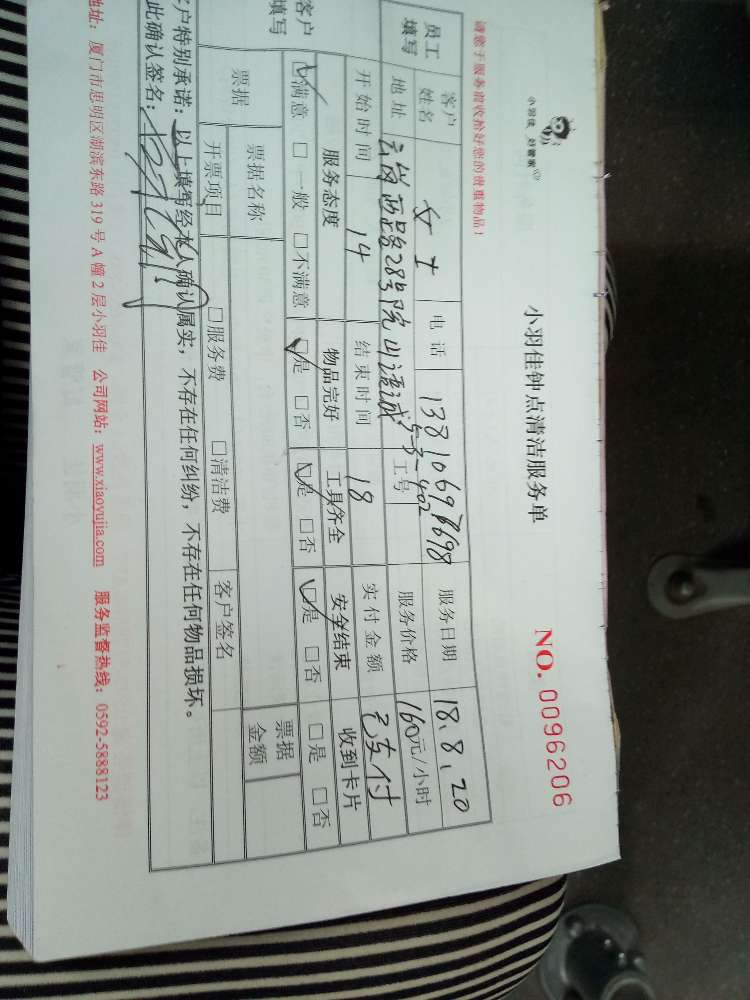 小羽佳 好管家
小羽佳钟点清洁服务单
NO. 0096206
请您于服务前收拾好您的贵重物品！
员工填写 客户姓名 女士 电话 服务日期 18.8.20
地址 西路28号院 工号 服务价格 160元/小时
开始时间 14 结束时间 18 实付金额 已支付
客户填写 服务态度 物品完好 工具齐全 安全结束 收到卡片
☑满意 □一般 □不满意 ☑是 □否 ☑是 □否 ☑是 □否 □是 □否
票据 票据名称 票据金额
开票项目 □服务费 □清洁费 客户签名
客户特别承诺：以上填写经本人确认属实，不存在任何纠纷，不存在任何物品损坏。
此确认签名：
地址：厦门市思明区湖滨东路319号A幢2层小羽佳 公司网站：www.xiaoyujia.com 服务监督热线：0592-5888123